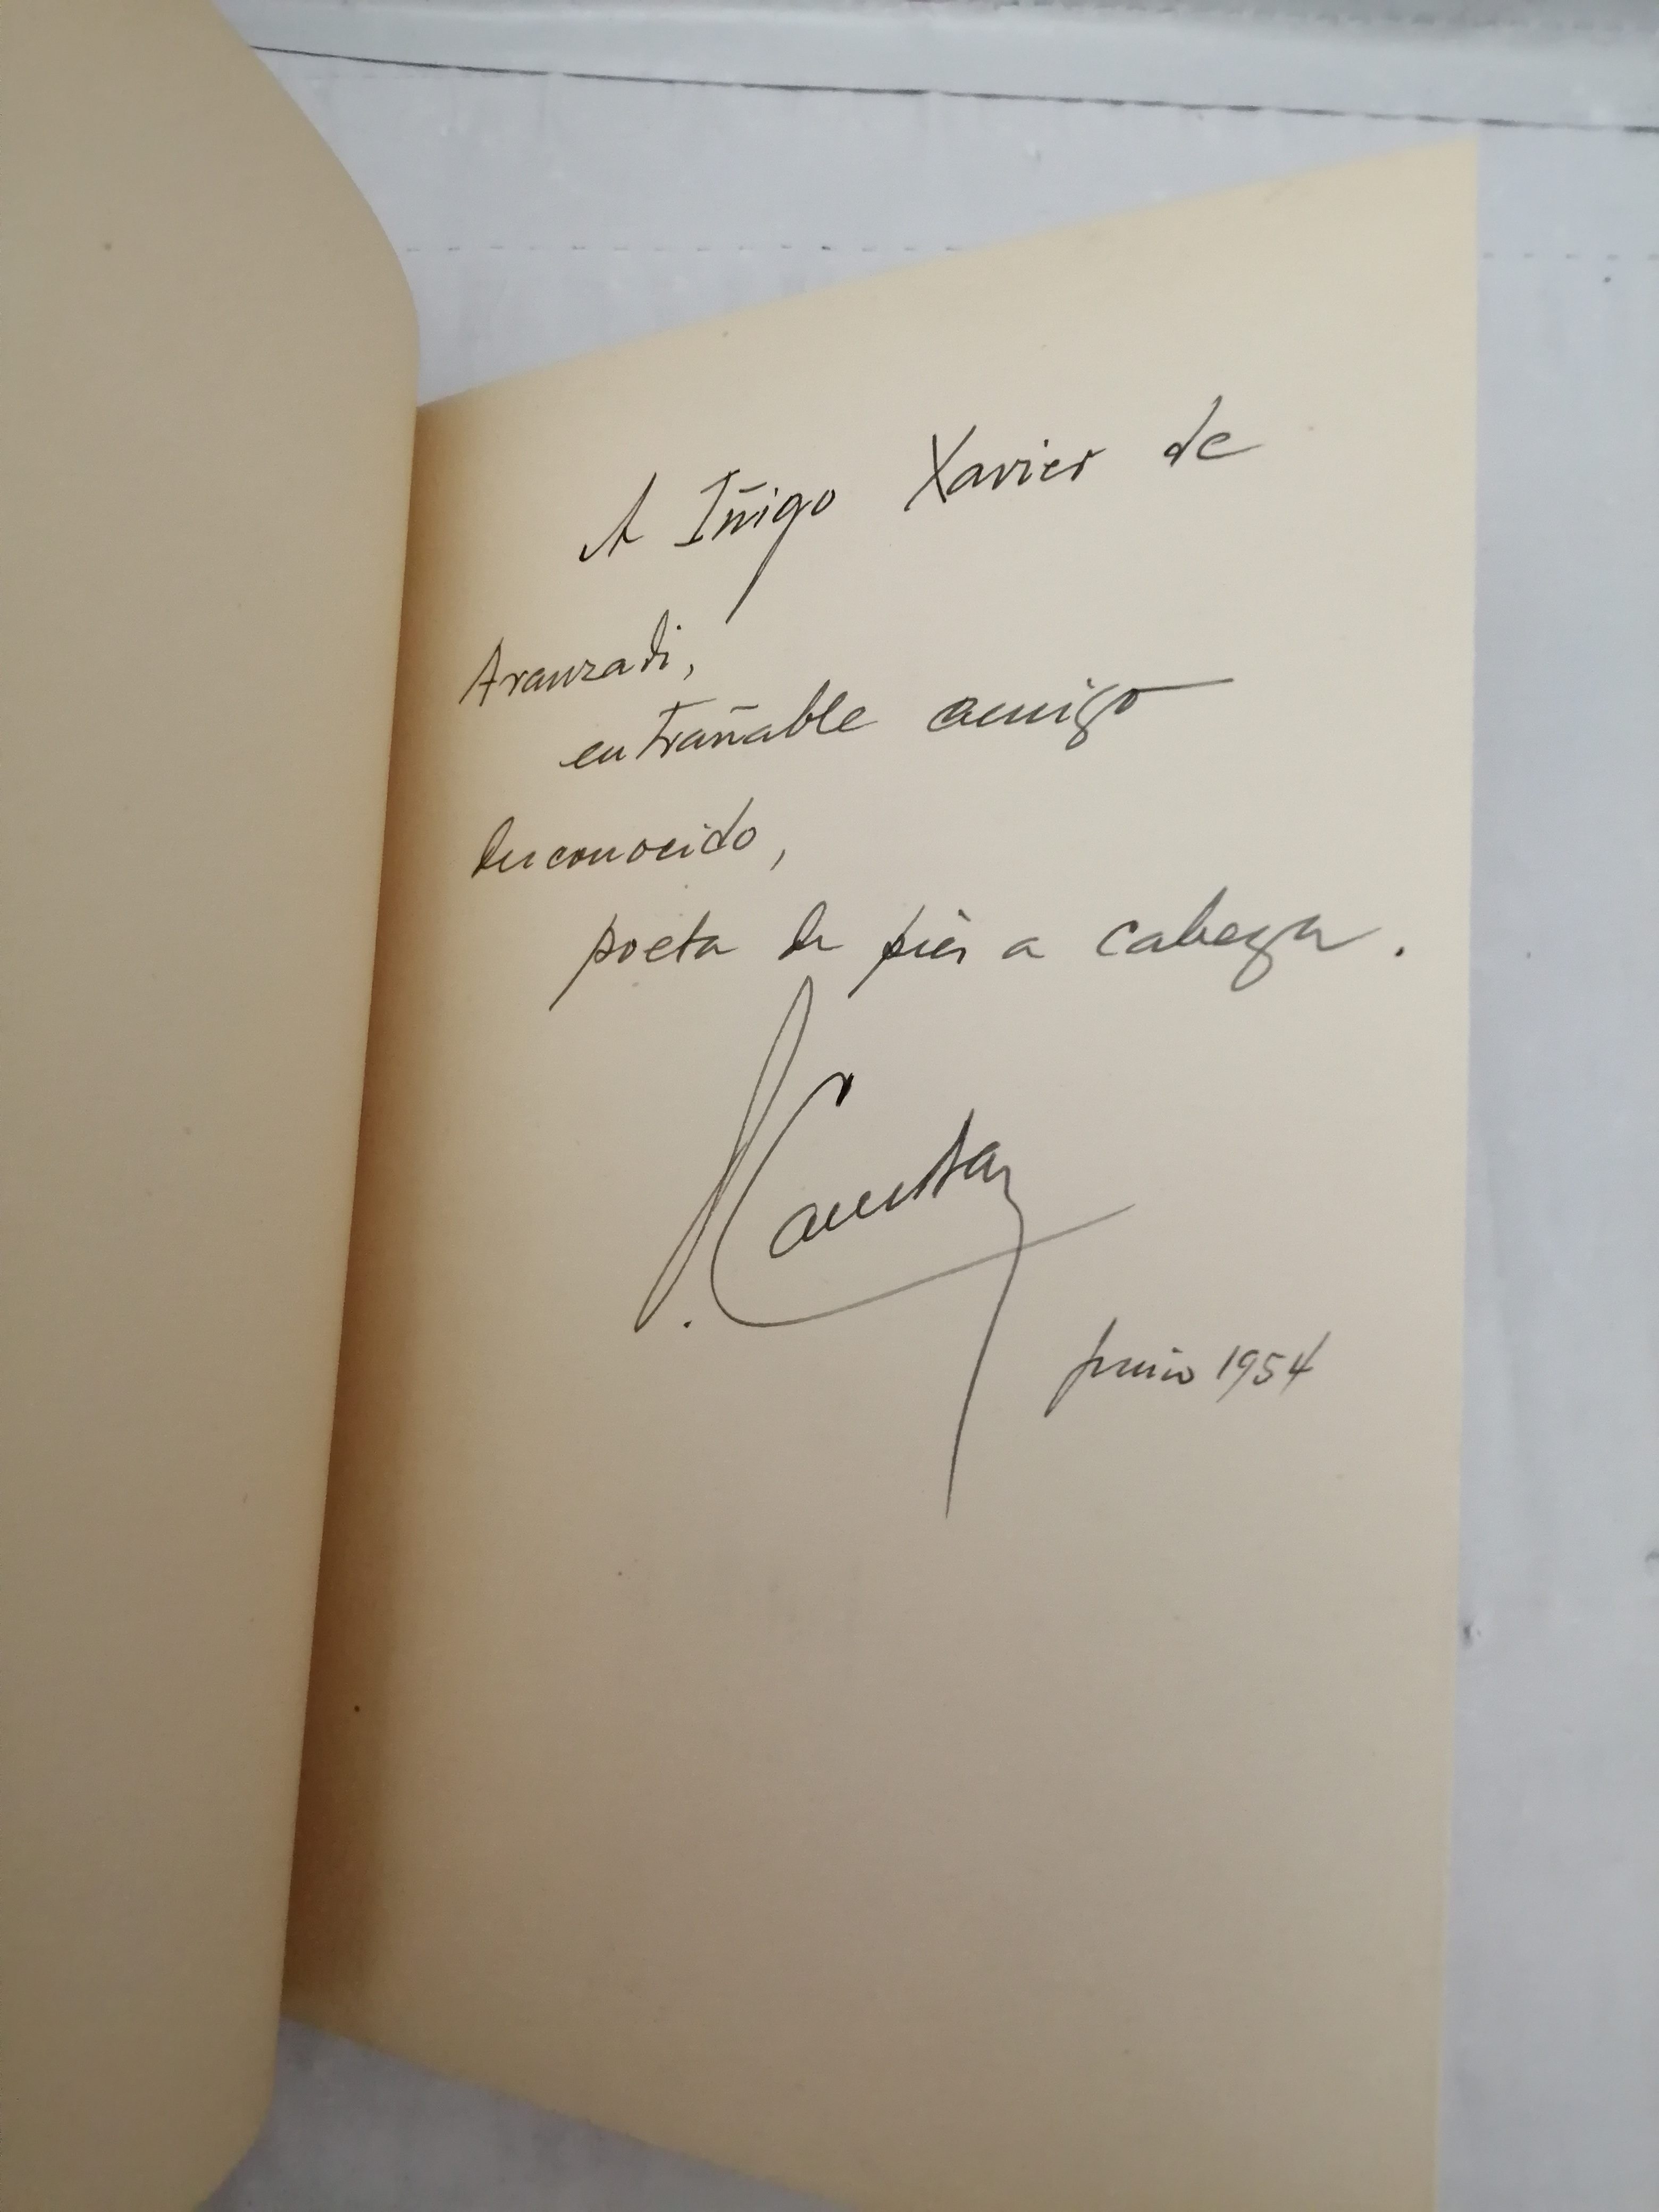 A Iñigo Xavier de
Aranzadi,
entrañable amigo
desconocido,
poeta de pies a cabeza.
Junio 1954